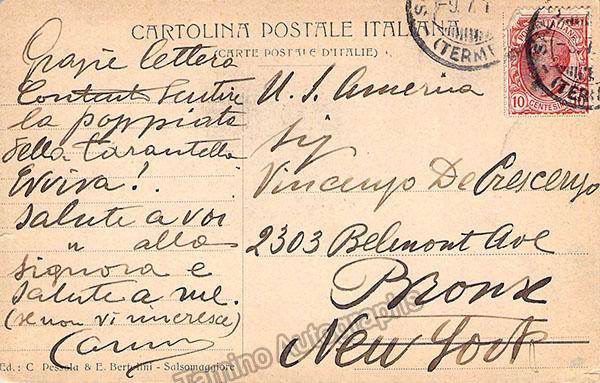 CARTOLINA POSTALE ITALIANA
(CARTE POSTALE D'ITALIE)
Grazie lettera
Contentt Sentire
la poppiata
della Tarantella
Evviva!.
Salute a voi
" alla
Signora e
Salute a me.
(se non vi incresce)
U. S. America
Sig
Vincenzo De Crescenzo
2303 Belmont Ave
Bronx
New York
10
CENTESIMI
(TERME
(TERM
Ed.: C. Pessola & E. Bertolini - Salsomaggiore
Tamino Autographs